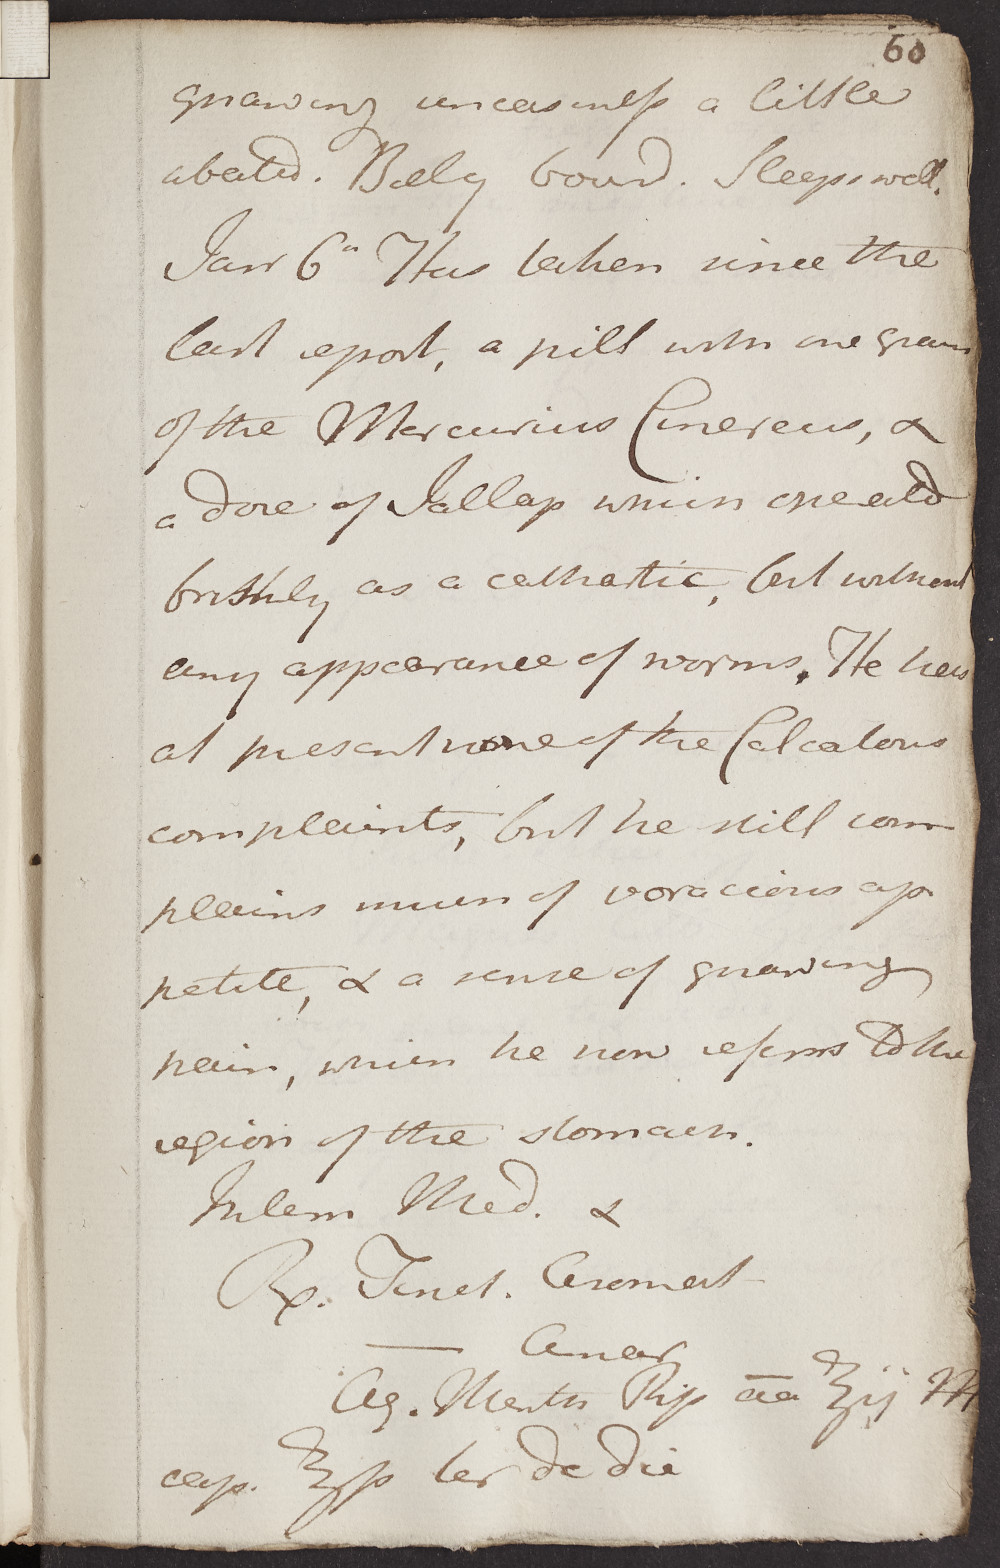 60
gnawing uneasiness a little
abated. Belly bound. Sleeps well.
Janr 6th Has taken since the
last report, a pill with one grain
of the Mercurius Cinereus, &
a dose of Jallap which operated
briskly as a cathartic, but without
any appearance of worms. He has
at present none of the Calculous
complaints, but he still com
plains much of voracious ap
petite, & a sense of gnawing
pain, which he now refers to the
region of the stomach.
Intem Med. &
Rx. Tinct. Aromat
— Amar
Aq. Menth Pip āā ℥ij M
cap. ℥ss ter de die